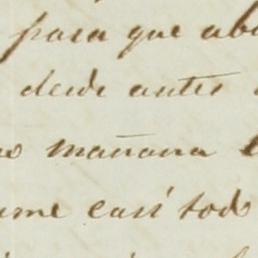 para que ab
desde antes
mañana
me casi todo